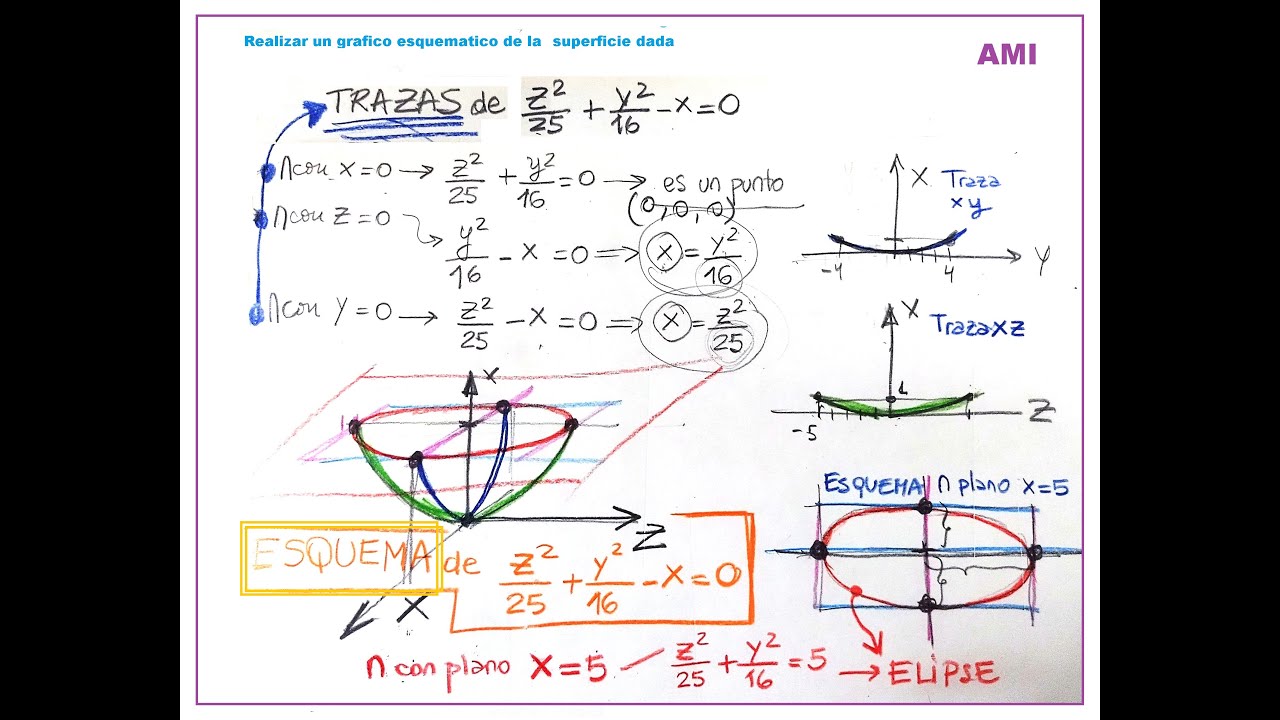 Realizar un grafico esquematico de la superficie dada
AMI
TRAZAS de z²/25 + y²/16 - x = 0
∩ con x = 0 → z²/25 + y²/16 = 0 → es un punto
(0,0,0)
∩ con z = 0
y²/16 - x = 0 ⇒ x = y²/16
∩ con y = 0 → z²/25 - x = 0 ⇒ x = z²/25
X
Traza
xy
-4
4
Y
X
Traza xz
1
-5
Z
X
Z
X
ESQUEMA ∩ plano x=5
ESQUEMA de z²/25 + y²/16 - x = 0
∩ con plano x = 5 z²/25 + y²/16 = 5 → ELIPSE